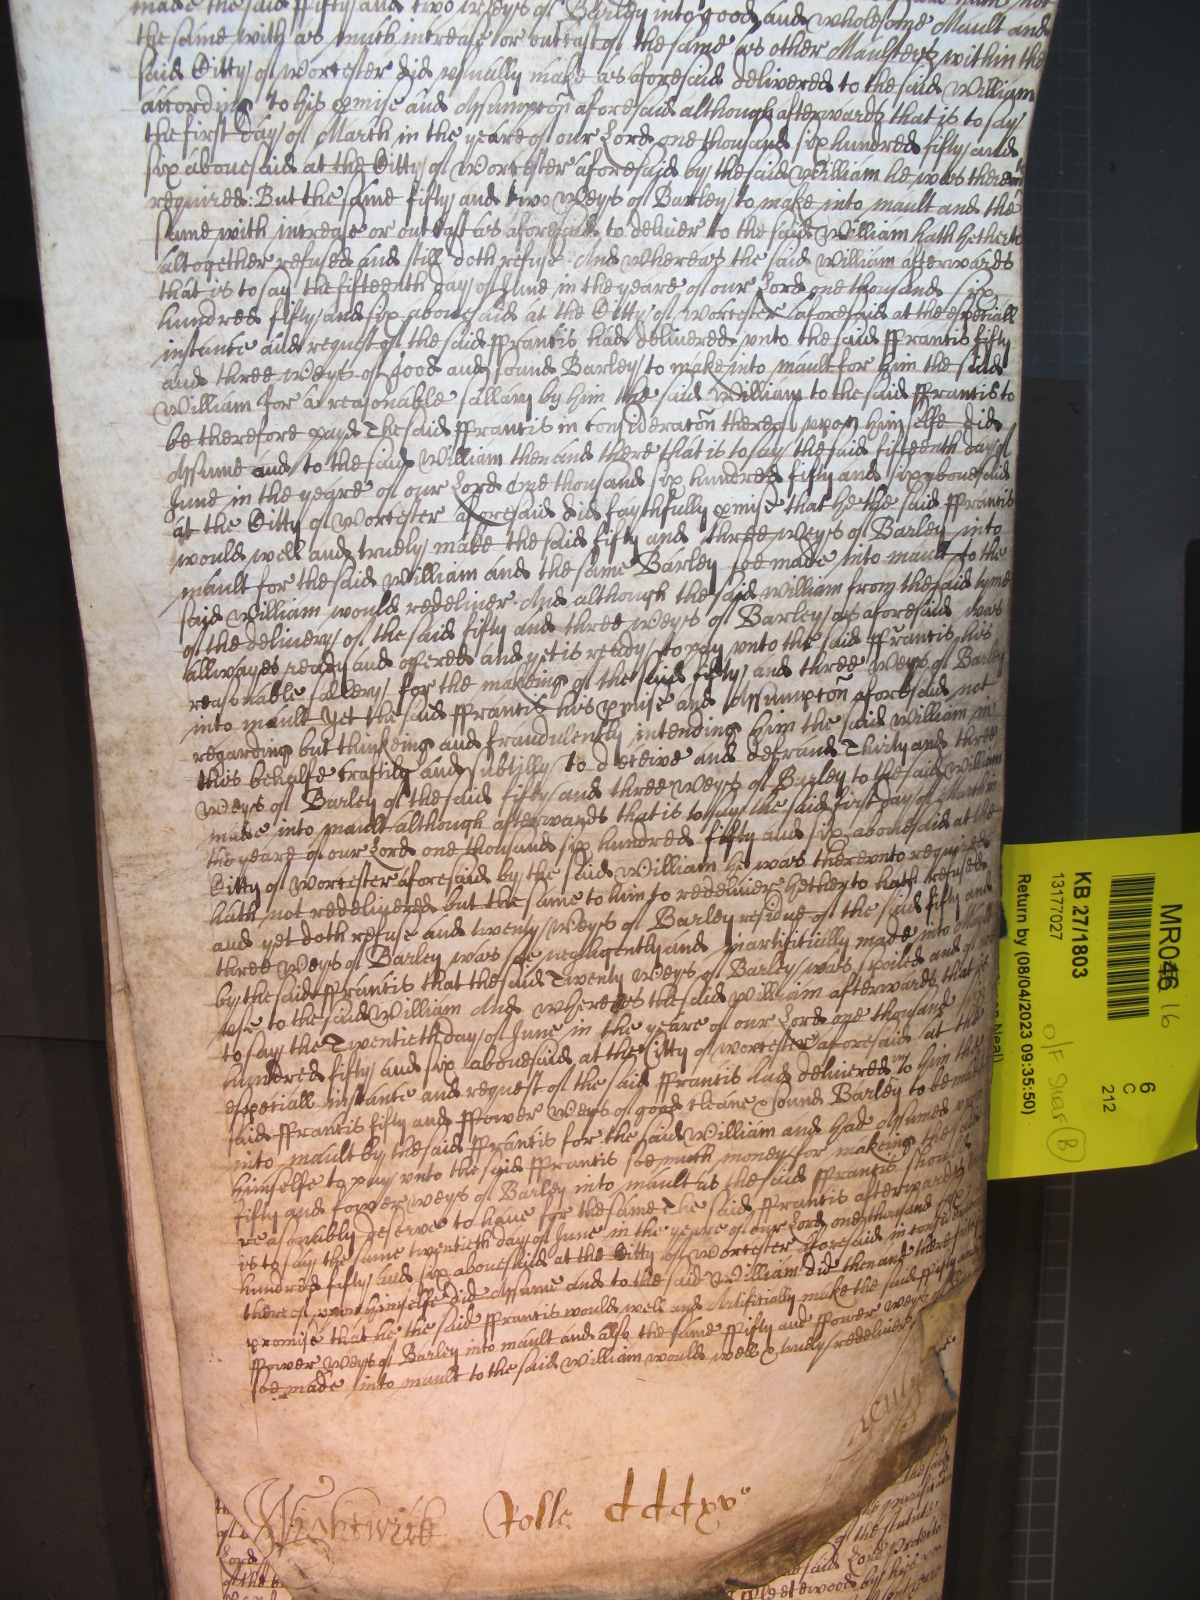 made the said fifty and two Weyes of Barley into good and wholesome Mault and
the same with as much increase or outcast of the same as other Maulsters within the
said Citty of Worcester did usually make as aforesaid delivered to the said William
according to his pmise and Assumpcõn aforesaid although afterwards that is to say
the first day of March in the yeare of our Lord one thousand six hundred fifty and
six abovesaid at the Citty of Worcester aforesaid by the said William he was thereunto
required: But the same fifty and two Weys of Barley to make into mault and the
same with increase or outcast as aforesaid to deliver to the said William hath hetherto
altogether refused and still doth refuse And whereas the said William afterwards
that is to say the fifteenth day of June in the yeare of our Lord one thousand six
hundred fifty and six abovesaid at the Citty of Worcester aforesaid at the especiall
instance and request of the said ffrancis had delivered unto the said ffrancis fifty
and three Weys of good and sound Barley to make into mault for him the said
William for a reasonable sallary by him the said William to the said ffrancis to
be therefore payd The said ffrancis in consideracõn thereof upon him selfe did
Assume and to the said William then and there that is to say the said fifteenth day of
June in the yeare of our Lord One thousand six hundred fifty and six abovesaid
at the Citty of Worcester aforesaid did faythfully pmise that he the said ffrancis
would well and truely make the said fifty and three Weys of Barley into
mault for the said William and the same Barley soe made into mault to the
said William would redeliver And although the said William from the said tyme
of the delivery of the said fifty and three Weys of Barley as aforesaid was
allwayes ready and offered and yet is ready to pay unto the said ffrancis his
reasonable sallery for the makeing of the said fifty and three Weys of Barley
into mault Yet the said ffrancis his pmise and Assumpcõn aforesaid not
regarding but thinkeing and fraudulently intending him the said William in
this behalfe craftily and subtilly to deceive and defraud Thirty and three
Weys of Barley of the said fifty and three Weys of Barley to the said William
made into mault although afterwards that is to say the said first day of March in
the yeare of our Lord one thousand six hundred fifty and six abovesaid at the
Citty of Worcester aforesaid by the said William he was thereunto required
hath not redelivered but the same to him to redeliver hetherto hath refused
and yet doth refuse and twenty Weys of Barley residue of the said fifty and
three Weys of Barley was soe negligently and inartificially made into Mault
by the said ffrancis that the said Twenty Weys of Barley was spoiled and of noe
use to the said William And whereas the said William afterwards that is
to say the Twentieth day of June in the yeare of our Lord one thousand six
hundred fifty and six abovesaid at the Citty of Worcester aforesaid at the
especiall instance and request of the said ffrancis had delivered to him the
said ffrancis fifty and ffower Weys of good cleane & sound Barley to be made
into mault by the said ffrancis for the said William and had Assumed upon
himselfe to pay unto the said ffrancis soe much money for makeing the said
fifty and fower weys of Barley into mault as the said ffrancis should
reasonably deserve to have for the same The said ffrancis afterwards that
is to say the same twentieth day of June in the yeare of our Lord one thousand six
hundred fifty and six abovesaid at the Citty of Worcester aforesaid in consideracõn
thereof upon himselfe did Assume and to the said William did then and there faithfully
promise that he the said ffrancis would well and Artificially make the said fifty and
ffower Weys of Barley into mault and also the same ffifty and ffower weys of Barley
soe made into mault to the said William would well & truely redeliver
Wightwick Rolle dddxvo
MR046
16
6
C
212
KB 27/1803
13177027
Return by (08/04/2023 09:35:50)